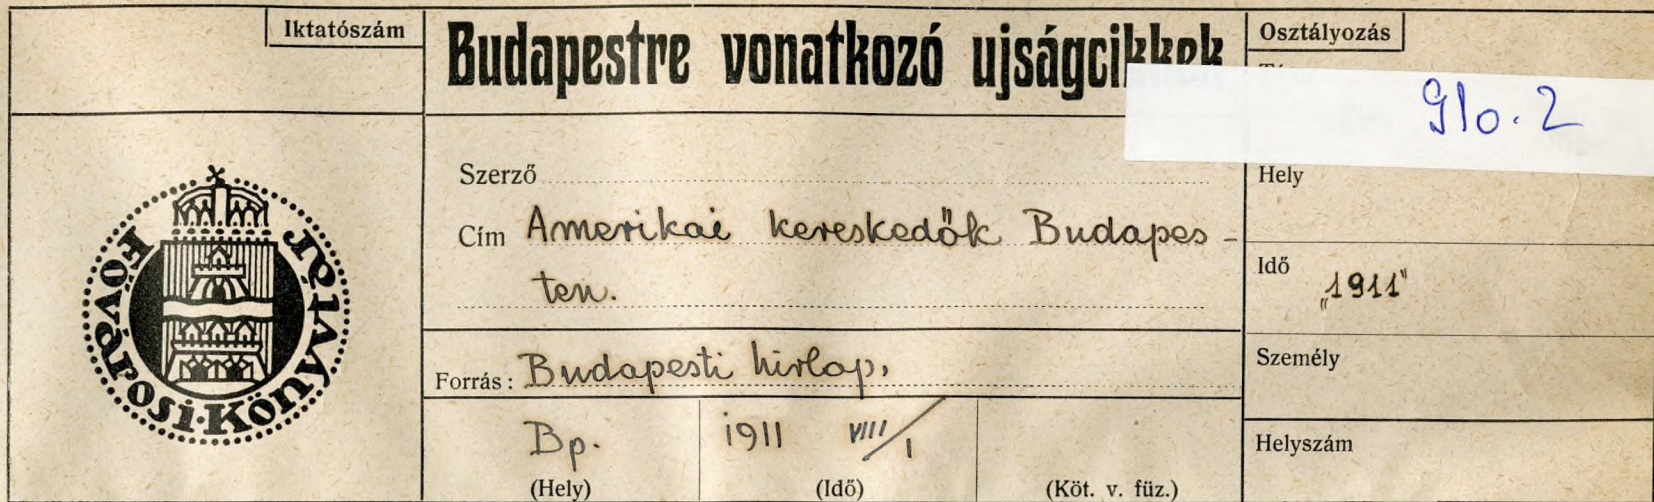 Iktatószám
Budapestre vonatkozó ujságcikkek
Osztályozás
910.2
Fővárosi·Könyvtár
Szerző
Cím Amerikai kereskedők Budapes-
ten.
Forrás: Budapesti hirlap.
Bp.
(Hely)
1911 VIII/1
(Idő)
(Köt. v. füz.)
Hely
Idő
„1911"
Személy
Helyszám